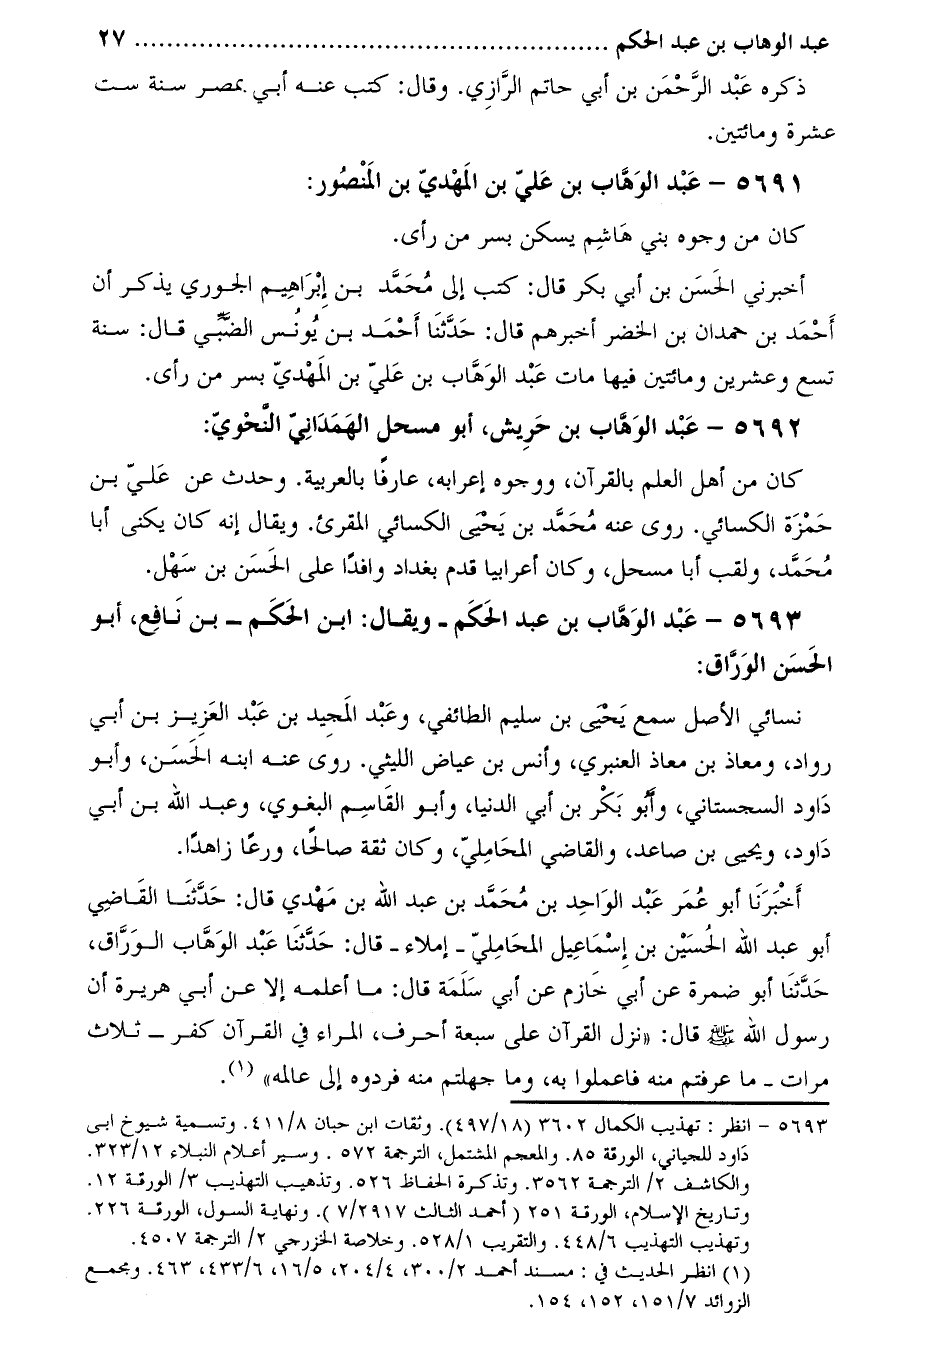 عبد الوهاب بن عبد الحكم ............................................................ ٢٧
ذكره عَبْد الرَّحْمَن بن أبي حاتم الرَّازِي. وقال: كتب عنه أبي بمصر سنة ست
عشرة ومائتين.
٥٦٩١ – عَبْد الوَهَّاب بن عَليّ بن المَهْديّ بن المَنْصُور:
كان من وجوه بني هَاشِم يسكن بسر من رأى.
أخبرني الحَسَن بن أبي بكر قال: كتب إلى مُحَمَّد بن إِبْرَاهِيم الجوري يذكر أن
أَحْمَد بن حمدان بن الخضر أخبرهم قال: حَدَّثَنَا أَحْمَد بن يُونُس الضَّبِّي قال: سنة
تسع وعشرين ومائتين فيها مات عَبْد الوَهَّاب بن عَليّ بن المَهْديّ بسر من رأى.
٥٦٩٢ – عَبْد الوَهَّاب بن حَرِيش، أبو مسحل الهَمَدَانِيّ النَّحْوِيّ:
كان من أهل العلم بالقرآن، ووجوه إعرابه، عارفًا بالعربية. وحدث عن عَليّ بن
حَمْزَة الكسائي. روى عنه مُحَمَّد بن يَحْيَى الكسائي المقرئ. ويقال إنه كان يكنى أبا
مُحَمَّد، ولقب أبا مسحل، وكان أعرابيا قدم بغداد وافدًا على الحَسَن بن سَهْل.
٥٦٩٣ – عَبْد الوَهَّاب بن عبد الحَكَم ـ ويقال: ابن الحَكَم ـ بن نَافِع، أبو
الحَسَن الوَرَّاق:
نسائي الأصل سمع يَحْيَى بن سليم الطائفي، وعَبْد المَجِيد بن عَبْد العَزِيز بن أبي
رواد، ومعاذ بن معاذ العنبري، وأنس بن عياض الليثي. روى عنه ابنه الحَسَن، وأبو
دَاود السجستاني، وأَبُو بَكْر بن أبي الدنيا، وأبو القَاسِم البغوي، وعبد الله بن أبي
دَاود، ويحيى بن صاعد، والقاضي المحَامِليّ، وكان ثقة صالحًا، ورعًا زاهدًا.
أَخْبَرَنَا أبو عُمَر عَبْد الوَاحِد بن مُحَمَّد بن عبد الله بن مَهْدي قال: حَدَّثَنَا القَاضِي
أبو عبد الله الحُسَيْن بن إِسْمَاعِيل المحَامِليّ ـ إملاء ـ قال: حَدَّثَنَا عَبْد الوَهَّاب الوَرَّاق،
حَدَّثَنَا أبو ضمرة عن أبي حَازِم عن أبي سَلَمَة قال: ما أعلمه إلا عن أبي هريرة أن
رسول الله ﷺ قال: «نزل القرآن على سبعة أحرف، المراء في القرآن كفر ـ ثلاث
مرات ـ ما عرفتم منه فاعملوا به، وما جهلتم منه فردوه إلى عالمه» (١).
٥٦٩٣ – انظر : تهذيب الكمال ٣٦٠٢ (٤٩٧/١٨). وثقات ابن حبان ٤١١/٨. وتسمية شيوخ ابى
داود للجياني، الورقة ٨٥. والمعجم المشتمل، الترجمة ٥٧٢ . وسير أعلام النبلاء ٣٢٣/١٢.
والكاشف ٢/ الترجمة ٣٥٦٢. وتذكرة الحفاظ ٥٢٦. وتذهيب التهذيب ٣/ الورقة ١٢.
وتاريخ الإسلام، الورقة ٢٥١ ( أحمد الثالث ٧/٢٩١٧ ). ونهاية السول، الورقة ٢٢٦.
وتهذيب التهذيب ٤٤٨/٦. والتقريب ٥٢٨/١. وخلاصة الخزرجي ٢/ الترجمة ٤٥٠٧.
(١) انظر الحديث في : مسند أحمد ٣٠٠/٢، ٢٠٤/٤، ١٦/٥، ٤٣٣/٦، ٤٦٣. ومجمع
الزوائد ١٥١/٧، ١٥٢، ١٥٤.